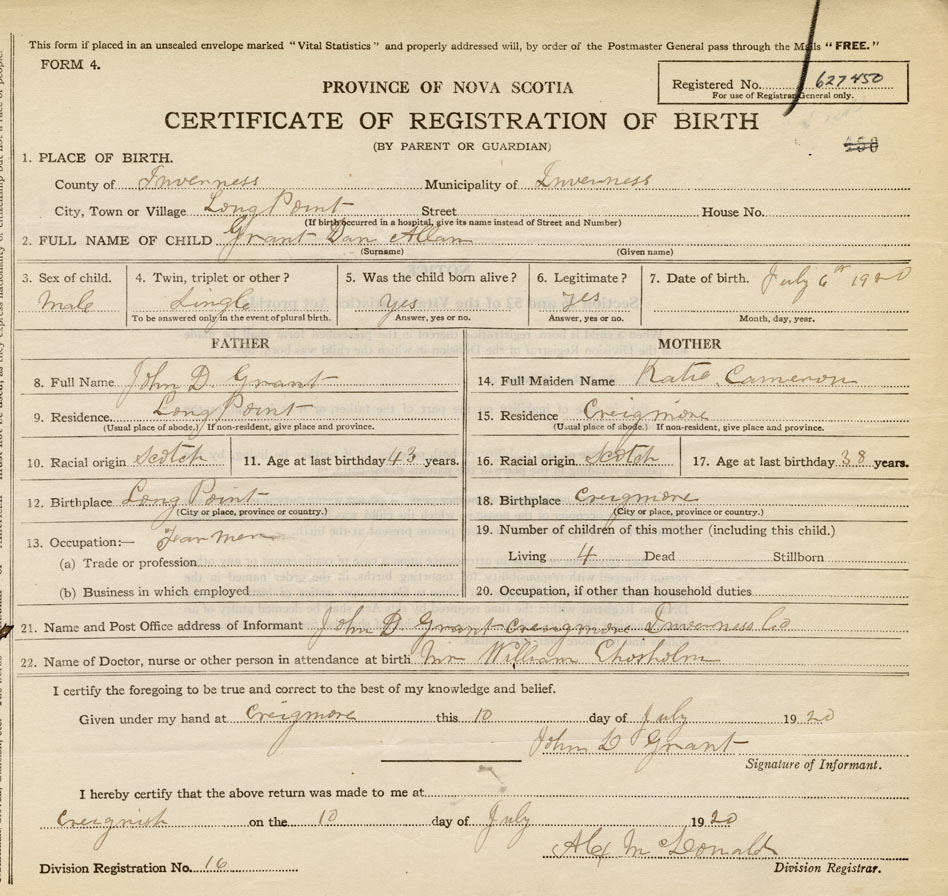 This form if placed in an unsealed envelope marked "Vital Statistics" and properly addressed will, by order of the Postmaster General pass through the Mails "FREE."
FORM 4.
Registered No. 627450
For use of Registrar General only.
PROVINCE OF NOVA SCOTIA
CERTIFICATE OF REGISTRATION OF BIRTH
(BY PARENT OR GUARDIAN)
450
1. PLACE OF BIRTH.
County of Inverness Municipality of Inverness
City, Town or Village Long Point Street House No.
(If birth occurred in a hospital, give its name instead of Street and Number)
2. FULL NAME OF CHILD Grant Dan Allan
(Surname) (Given name)
3. Sex of child. 4. Twin, triplet or other? 5. Was the child born alive? 6. Legitimate? 7. Date of birth. July 6th 1920
Male Single yes yes
To be answered only in the event of plural birth. Answer, yes or no. Answer, yes or no. Month, day, year.
FATHER MOTHER
8. Full Name John D. Grant 14. Full Maiden Name Katie Cameron
9. Residence. Long Point 15. Residence Creigmore
(Usual place of abode.) If non-resident, give place and province. (Usual place of abode.) If non-resident, give place and province.
10. Racial origin Scotch 11. Age at last birthday 43 years. 16. Racial origin Scotch 17. Age at last birthday 38 years.
12. Birthplace Long Point 18. Birthplace Creigmore
(City or place, province or country.) (City or place, province or country.)
13. Occupation:— Farmer 19. Number of children of this mother (including this child.)
(a) Trade or profession Living 4 Dead Stillborn
(b) Business in which employed 20. Occupation, if other than household duties
21. Name and Post Office address of Informant John D Grant Creigmore Inverness Co
22. Name of Doctor, nurse or other person in attendance at birth William Chosholm
I certify the foregoing to be true and correct to the best of my knowledge and belief.
Given under my hand at Creigmore this 10 day of July 1920
John D Grant
Signature of Informant.
I hereby certify that the above return was made to me at
Creignish on the 10 day of July 1920
Alex McDonald
Division Registration No. 16 Division Registrar.